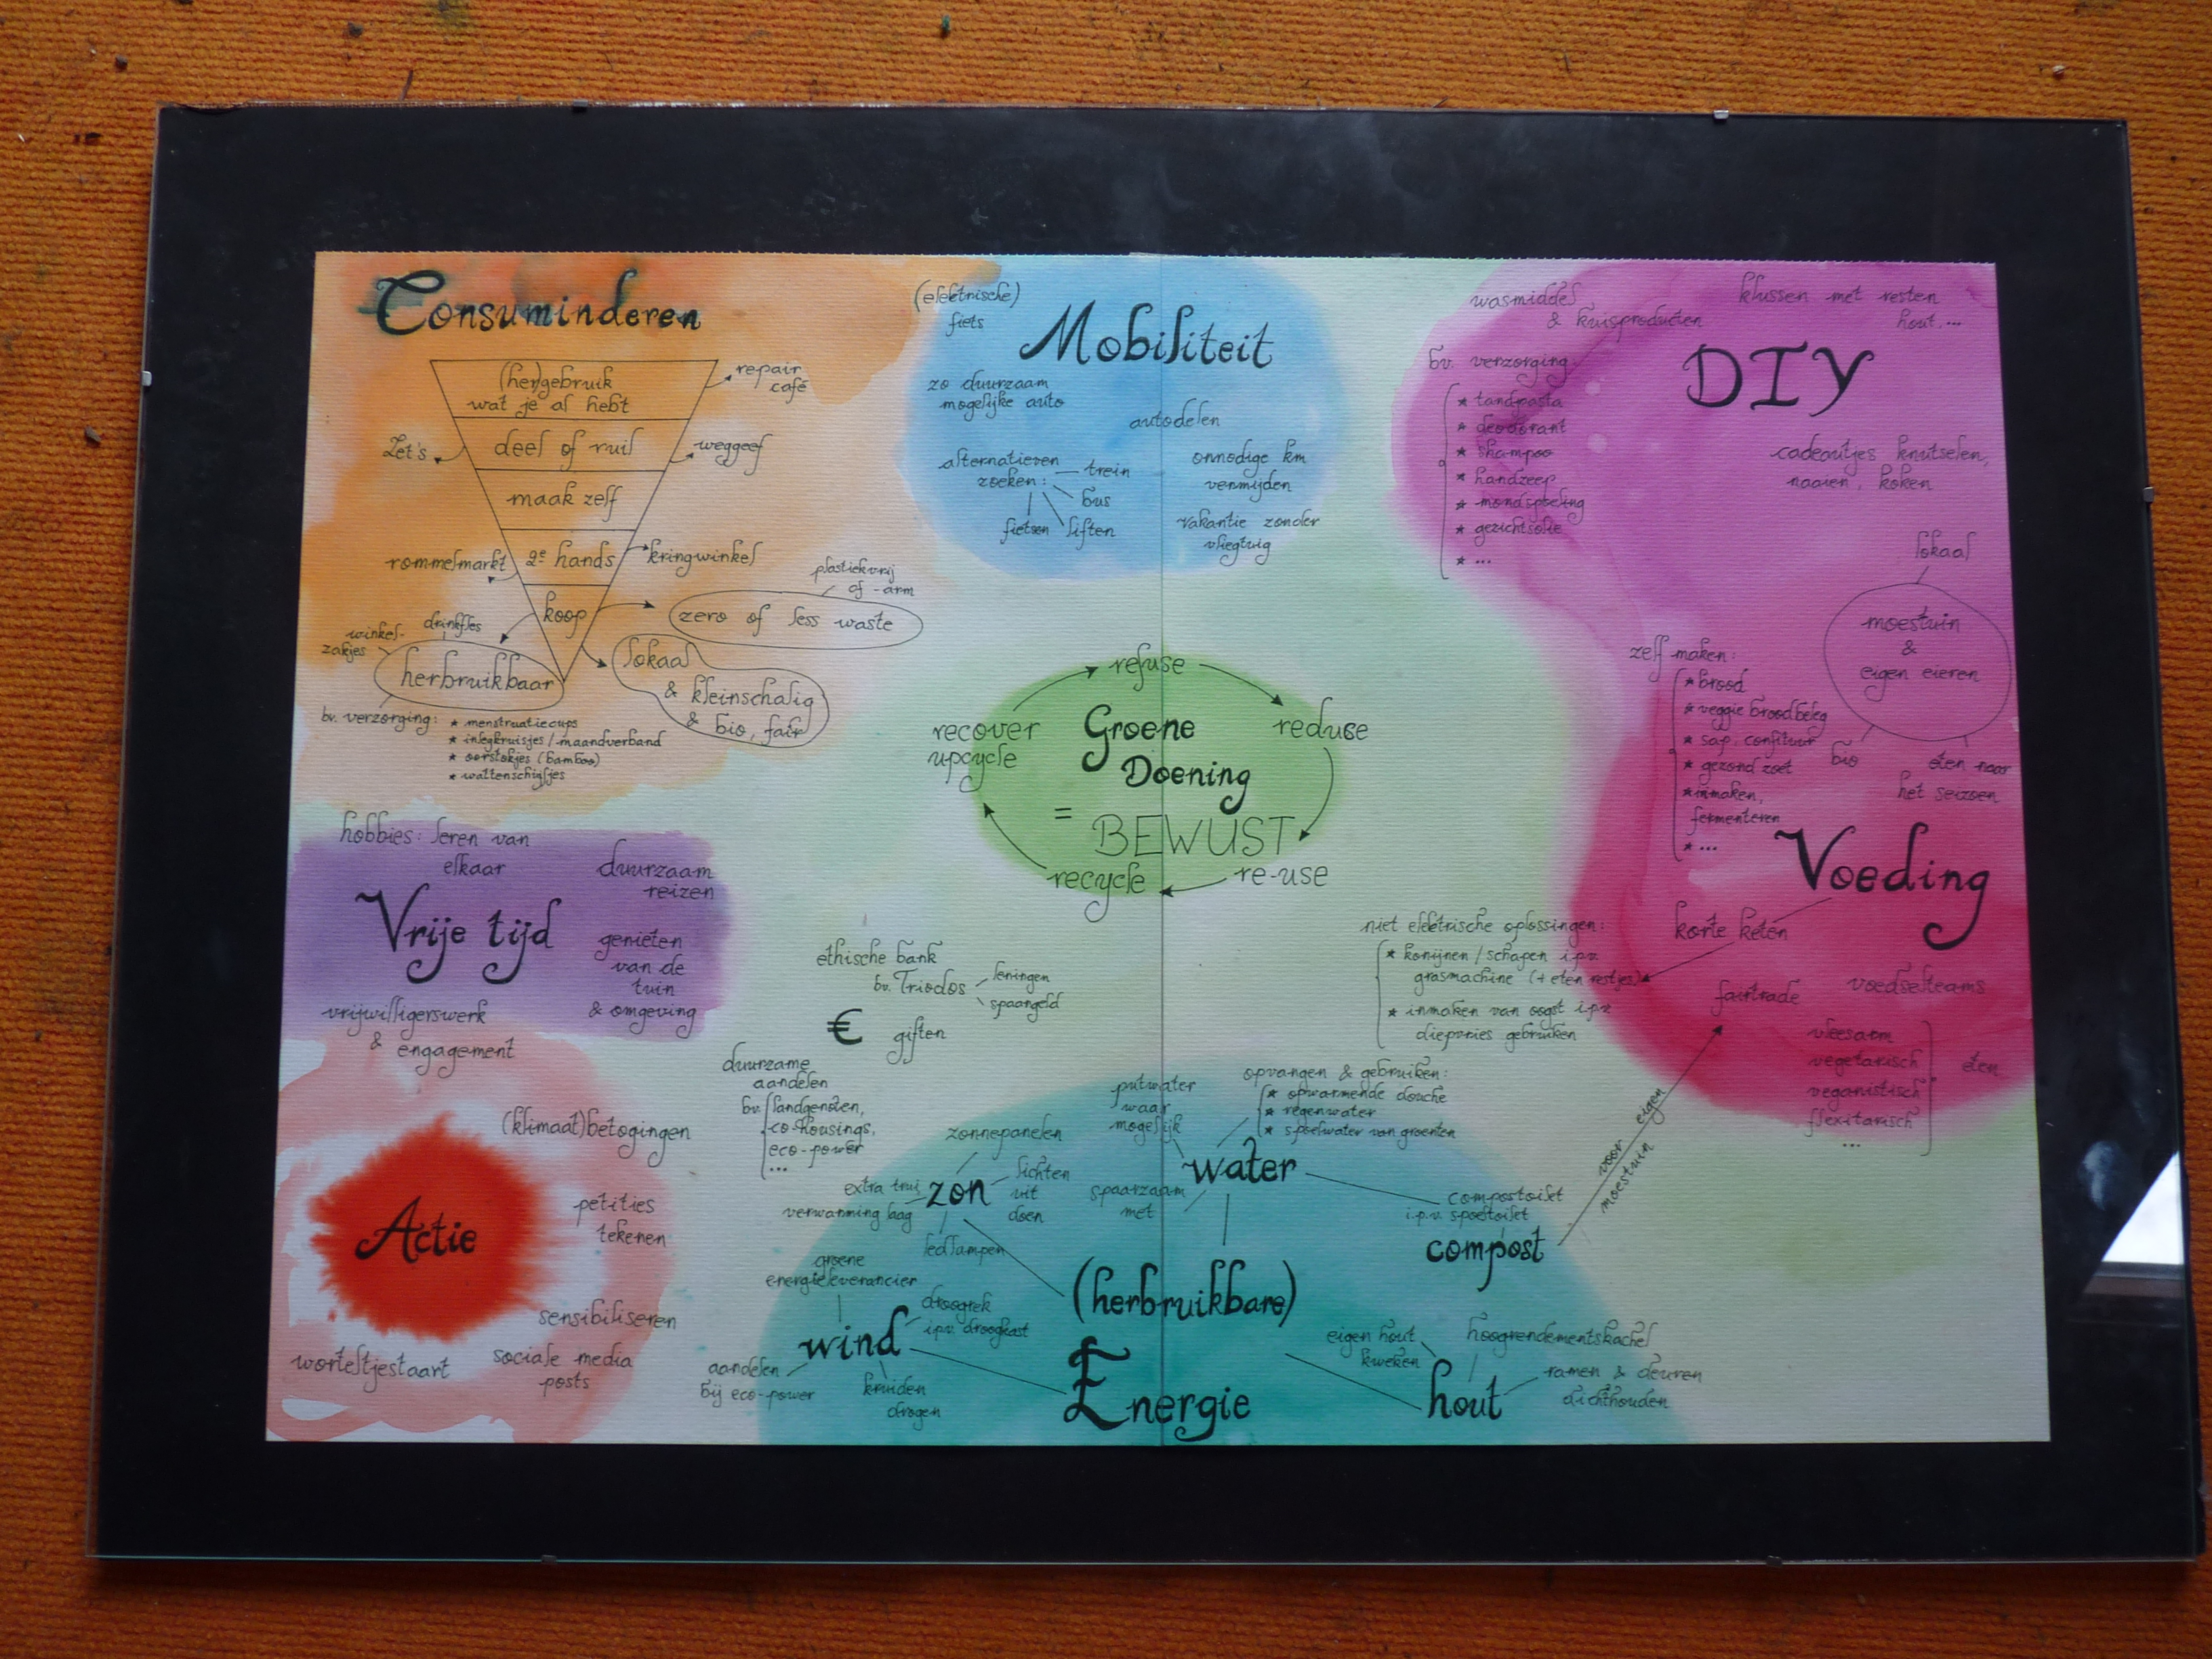 Consuminderen
(her)gebruik
wat je al hebt
repair
café
deel of ruil
Let's
weggeef
maak zelf
2e hands
rommelmarkt
kringwinkel
koop
plastiekvrij
of -arm
zero of less waste
lokaal
& kleinschalig
& bio, fair
drinkfles
winkel-
zakjes
herbruikbaar
bv. verzorging:
* menstruatiecups
* inlegkruisjes/maandverband
* oorstokjes (bamboo)
* wattenschijfjes
(elektrische)
fiets
Mobiliteit
zo duurzaam
mogelijke auto
autodelen
alternatieven
zoeken:
trein
bus
liften
fietsen
onnodige km
vermijden
vakantie zonder
vliegtuig
wasmiddel
& kuisproducten
klussen met resten
hout,...
DIY
bv. verzorging:
* tandpasta
* deodorant
* shampoo
* handzeep
* mondspoeling
* gezichtsolie
* ...
cadeautjes knutselen,
naaien, koken
lokaal
moestuin
&
eigen eieren
bio
eten naar
het seizoen
zelf maken:
* brood
* veggie broodbeleg
* sap, confituur
* gezond zoet
* inmaken,
fermenteren
* ...
Voeding
korte keten
fairtrade
voedselteams
vleesarm
vegetarisch
veganistisch
flexitarisch
...
eten
refuse
reduce
re-use
recycle
recover
upcycle
Groene
Doening
=
BEWUST
hobbies: leren van
elkaar
duurzaam
reizen
Vrije tijd
genieten
van de
tuin
& omgeving
vrijwilligerswerk
& engagement
ethische bank
bv. Triodos
leningen
spaargeld
€
giften
duurzame
aandelen
bv. landgenoten,
co-housings,
eco-power
...
niet elektrische oplossingen:
* konijnen/schapen i.p.v.
grasmachine (+ eten restjes)
* inmaken van oogst i.p.v
diepvries gebruiken
(klimaat)betogingen
Actie
petities
tekenen
sensibiliseren
sociale media
posts
worteltjestaart
putwater
waar
mogelijk
opvangen & gebruiken:
* opwarmende douche
* regenwater
* spoelwater van groenten
water
spaarzaam
met
zonnepanelen
zon
extra trui,
verwarming laag
lichten
uit
doen
ledlampen
composttoilet
i.p.v. spoeltoilet
compost
voor eigen
moestuin
groene
energieleverancier
droogrek
i.p.v. droogkast
wind
aandelen
bij eco-power
kruiden
drogen
(herbruikbare)
Energie
eigen hout
kweken
hoogrendementskachel
hout
ramen & deuren
dichthouden